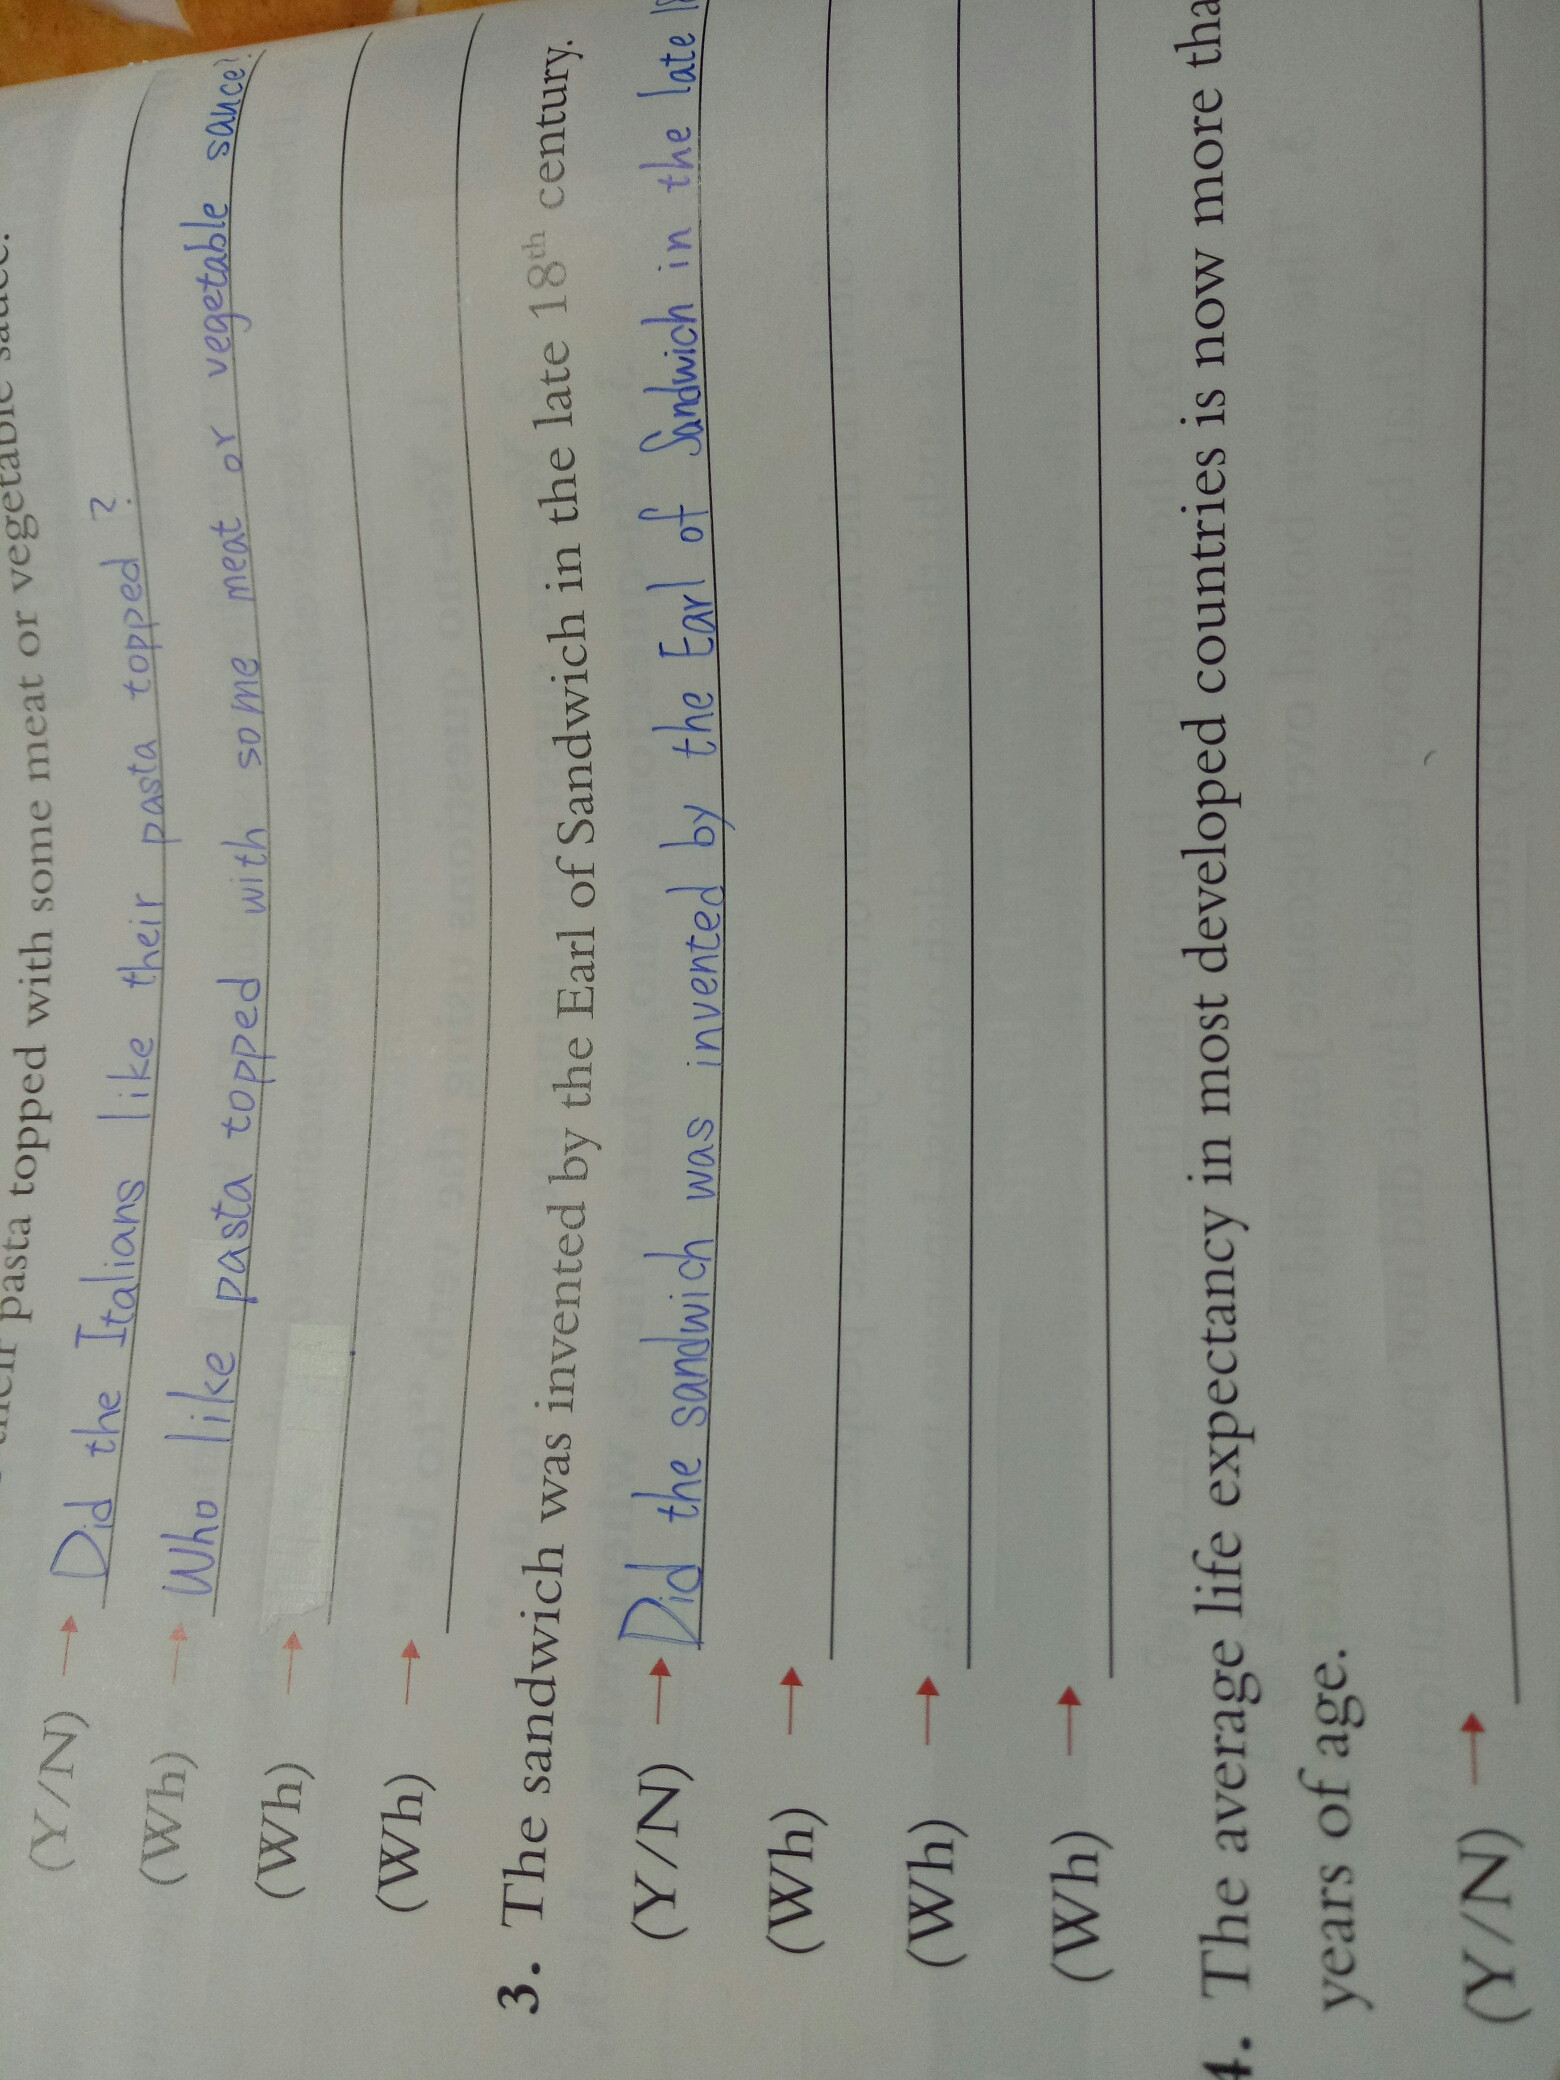 pasta topped with some meat or vegetable sauce.
(Y/N) → Did the Italians like their pasta topped?
(Wh) → Who like pasta topped with some meat or vegetable sauce?
(Wh) →
(Wh) →
3. The sandwich was invented by the Earl of Sandwich in the late 18th century.
(Y/N) → Did the sandwich was invented by the Earl of Sandwich in the late 18
(Wh) →
(Wh) →
(Wh) →
4. The average life expectancy in most developed countries is now more tha
years of age.
(Y/N) →